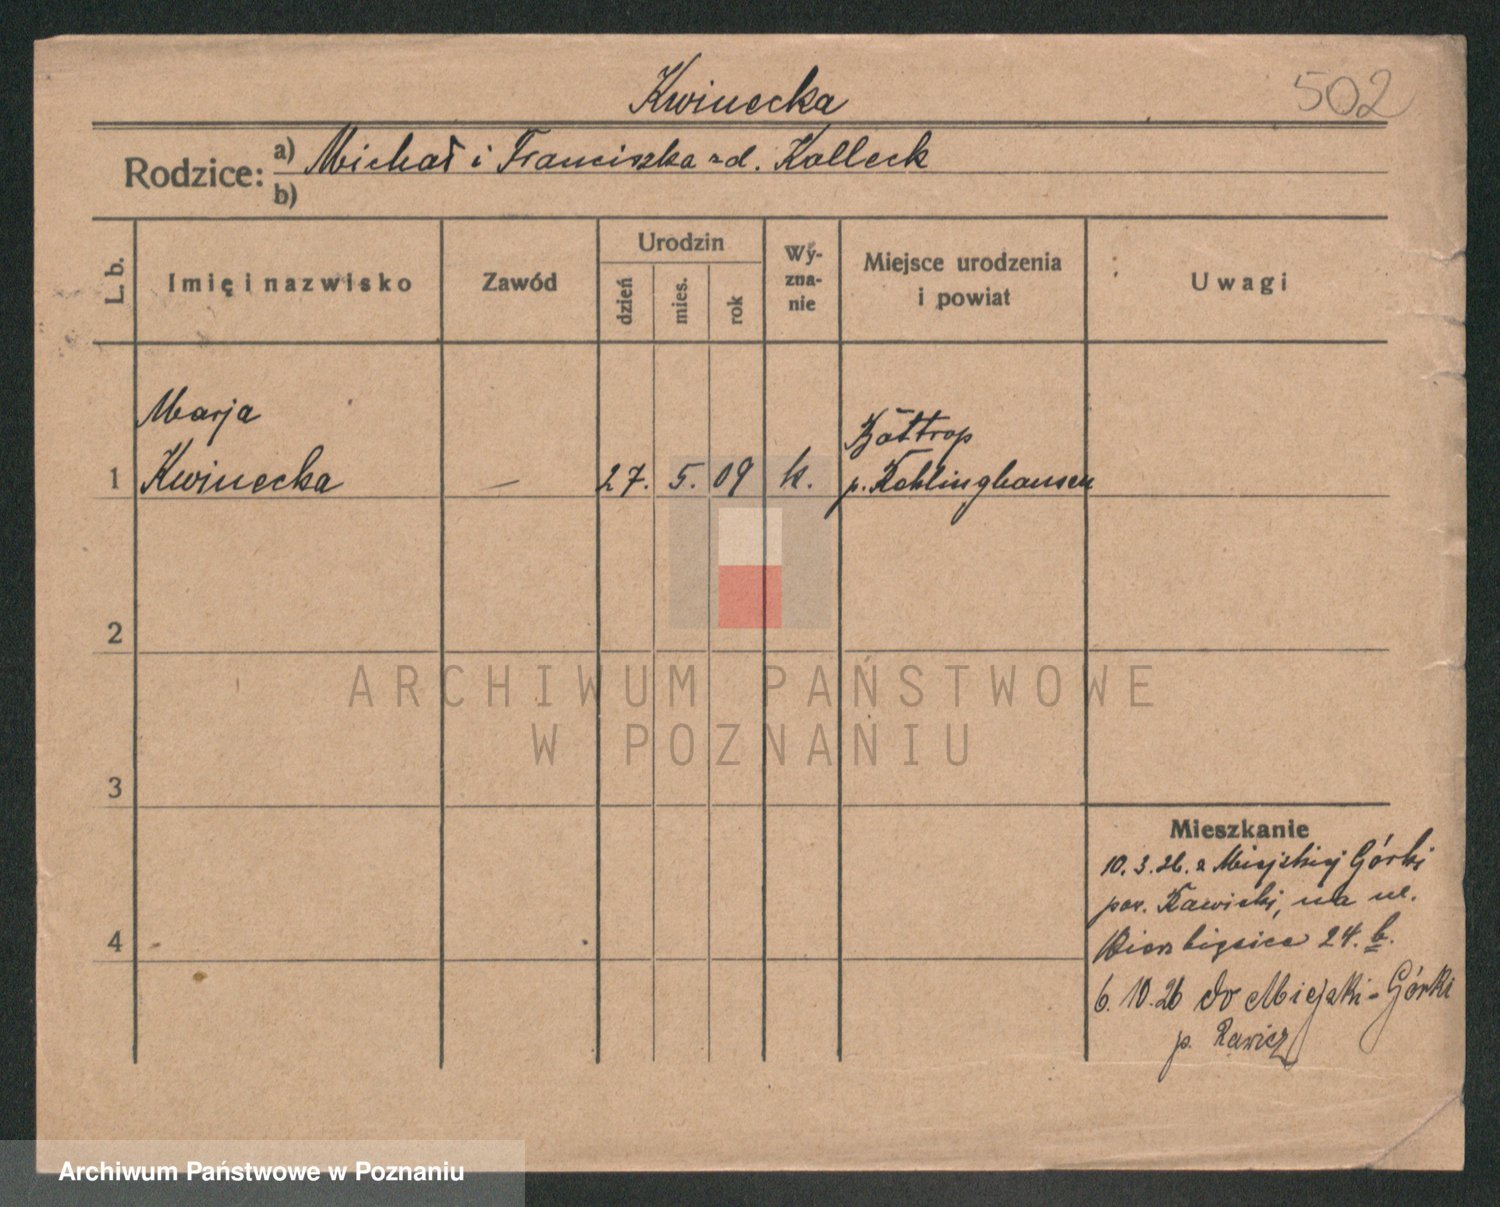 Kwinecka
502
Rodzice: a) Michał i Franciszka zd. Kolleck
b)
L. b.
Imię i nazwisko
Zawód
Urodzin
dzień
mies.
rok
Wy-
zna-
nie
Miejsce urodzenia
i powiat
Uwagi
Marja
1 Kwinecka — 27. 5. 09 k.
Bottrop
p. Reklinghausen
2
3
4
ARCHIWUM PAŃSTWOWE
W POZNANIU
Mieszkanie
10.3.26. z Miejskiej Górki
pow. Rawicki, na ul.
Wierzbięcice 24. b.
6.10.26 do Miejski-Górki
p. Rawicz
Archiwum Państwowe w Poznaniu